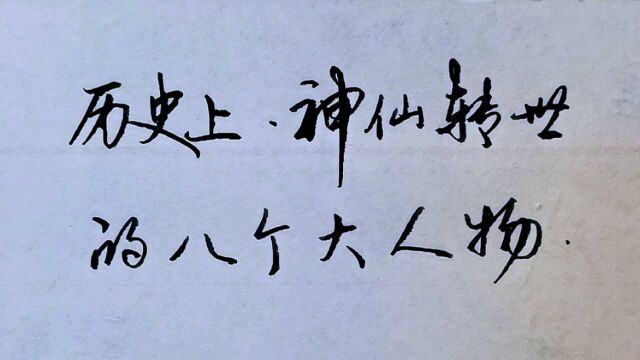 历史上.神仙转世
的八个大人物.